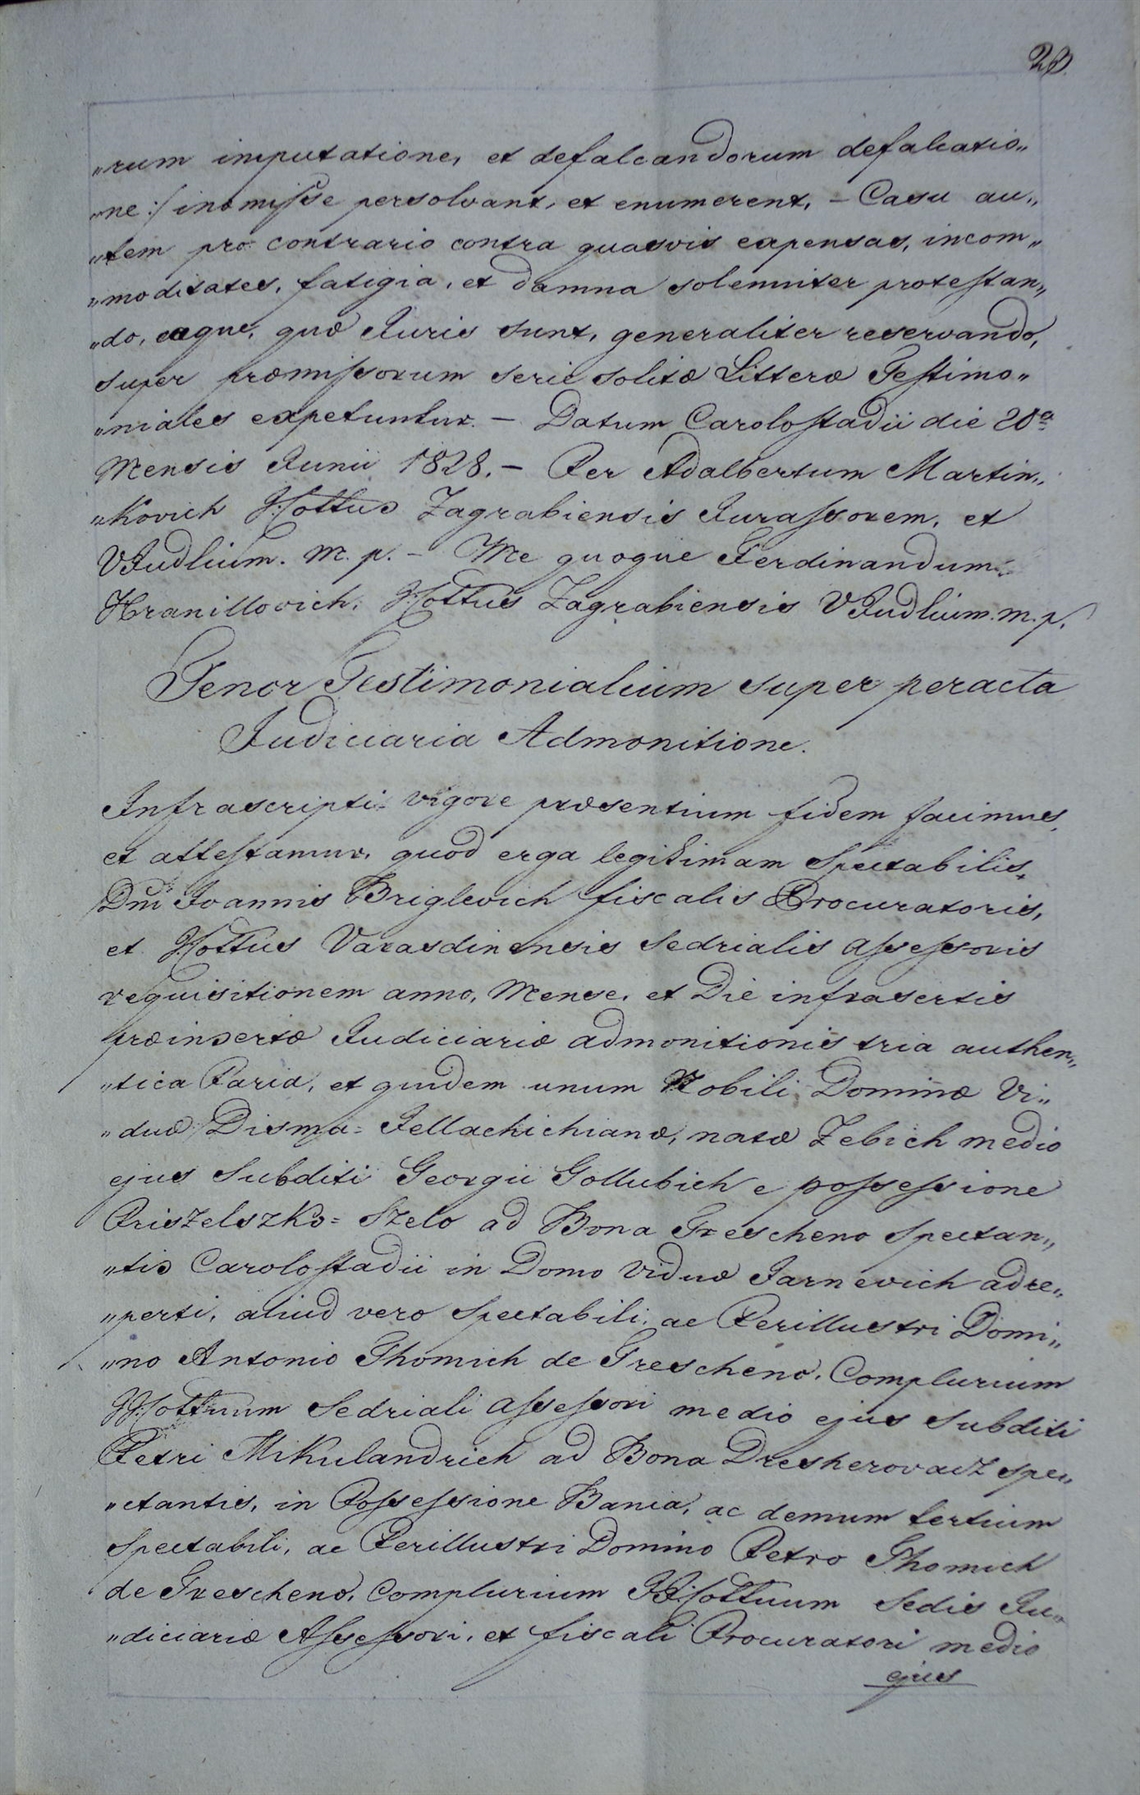 23.
„rum imputatione, et defalcandorum defalcatio„
„ne :/ inomisse persolvant, et enumerent, – Casu au„
„tem pro contrario contra quasvis expensas, incom„
„moditates, fatigia, et damna solenniter protestan„
„do, eaque, quæ Juris sunt, generaliter reservando,
super præmissorum serie solitæ Litteræ Testimo„
„niales expetuntur. – Datum Carolostadii die 20ª
Mensis Junii 1828. – Per Adalbertum Martin„
„kovich I: Cottus Zagrabiensis Jurassorem, et
VJudlium. m. p. – Me quoque Ferdinandum
Hranillovich, I: Cottus Zagrabiensis VJudlium. m. p.
Tenor Testimonialium super peracta
Judiciaria Admonitione.
Infrascripti vigore præsentium fidem facimus,
et attestamur, quod erga legitimam Spectabilis
Dni Joannis Briglevich fiscalis Procuratoris,
et I: Cottus Varasdinensis Sedrialis assessoris
requisitionem anno, Mense, et Die infrasertis
præinsertæ Judiciariæ admonitionis tria authen„
„tica Paria, et quidem unum Nobili Dominæ Vi„
„duæ Disma= Jellachichianæ, natæ Zebich medio
ejus Subditi Georgii Gollubich e possessione
Priszelszko= Szelo ad Bona Grescheno Spectan„
„tis Carolostadii in Domo Viduæ Jarnevich adre„
„perti, aliud vero Spectabili, ac Perillustri Domi„
„no Antonio Thomich de Grescheno, Complurium
II: Cottuum Sedriali assessori medio ejus Subditi
Petri Mikulandrich ad Bona Dresherovacz spe„
„ctantis, in Possessione Bania, ac demum tertium
Spectabili, ac Perillustri Domino Petro Thomich
de Grescheno, Complurium II: Cottuum Sedis Ju„
„diciariæ Assessori, et fiscali Procuratori medio
ejus